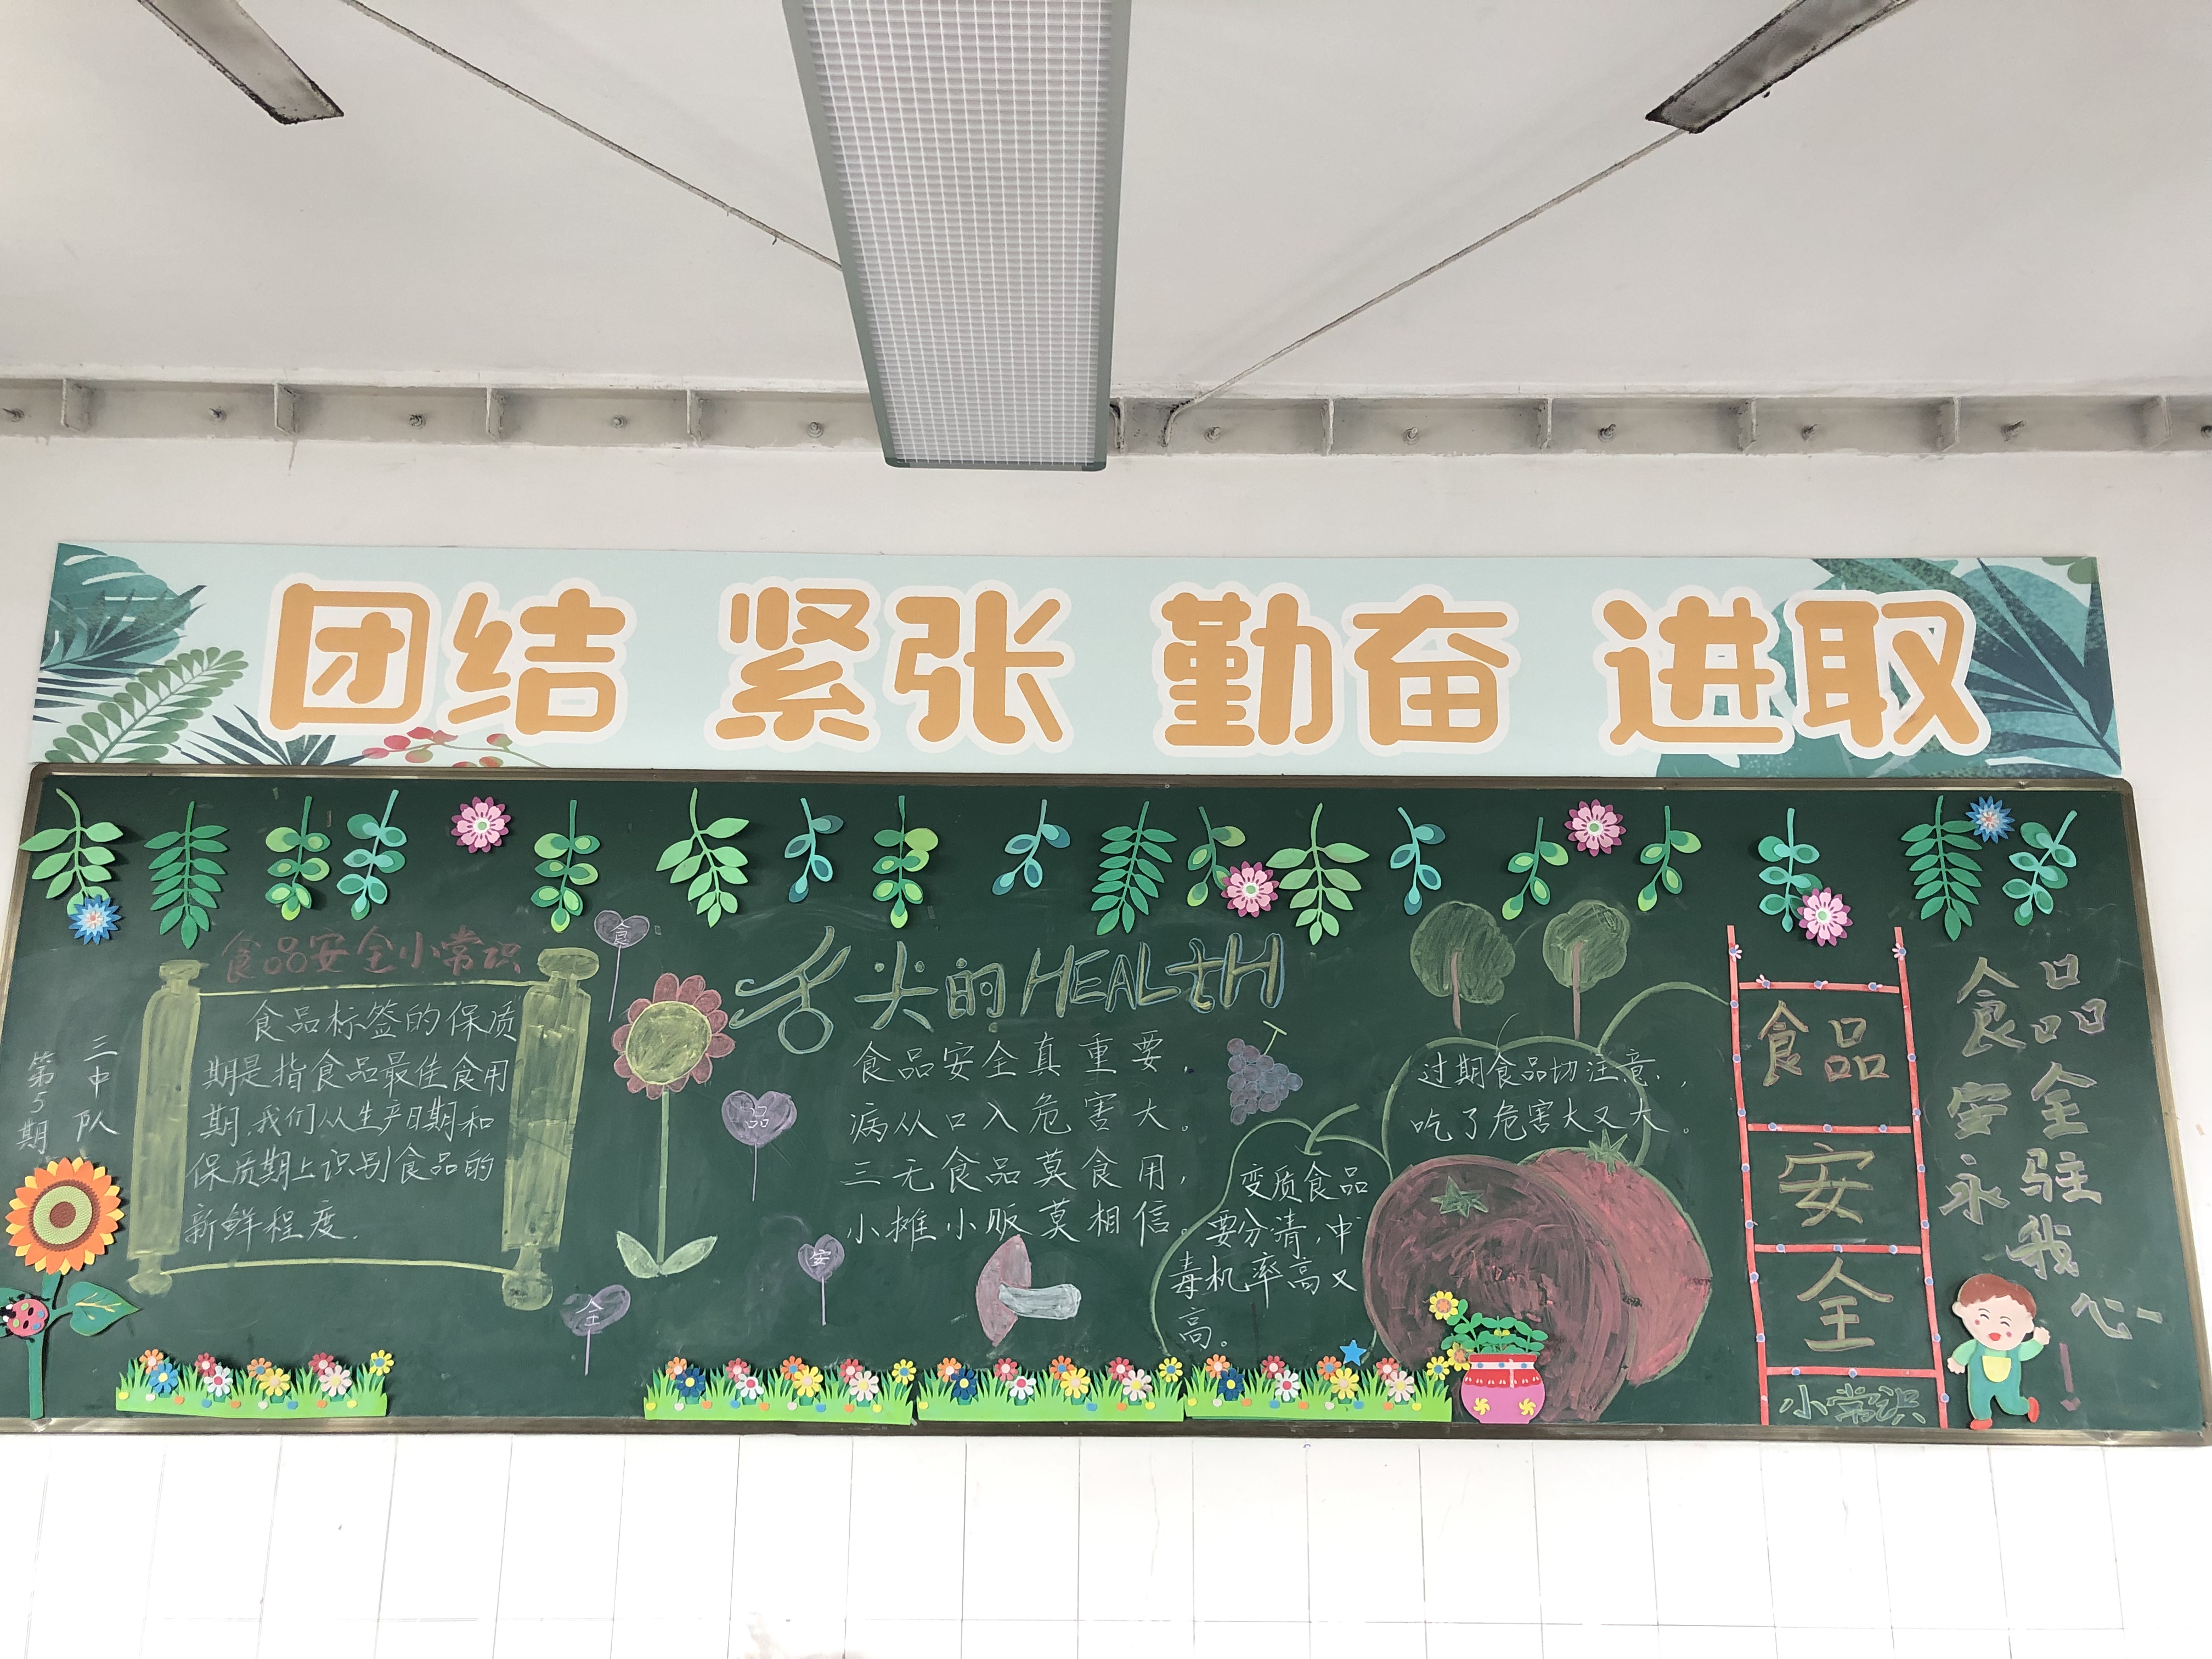 团结 紧张 勤奋 进取
三中队
第5期
食品安全小常识
食品标签的保质
期是指食品最佳食用
期,我们从生产日期和
保质期上识别食品的
新鲜程度.
食
品
安
全
舌尖的HEALtH
食品安全真重要,
病从口入危害大。
三无食品莫食用,
小摊小贩莫相信。
变质食品
要分清,中
毒机率高又
高。
过期食品切注意,
吃了危害大又大。
食品
安
全
小常识
食品
安全
永驻
我
心!